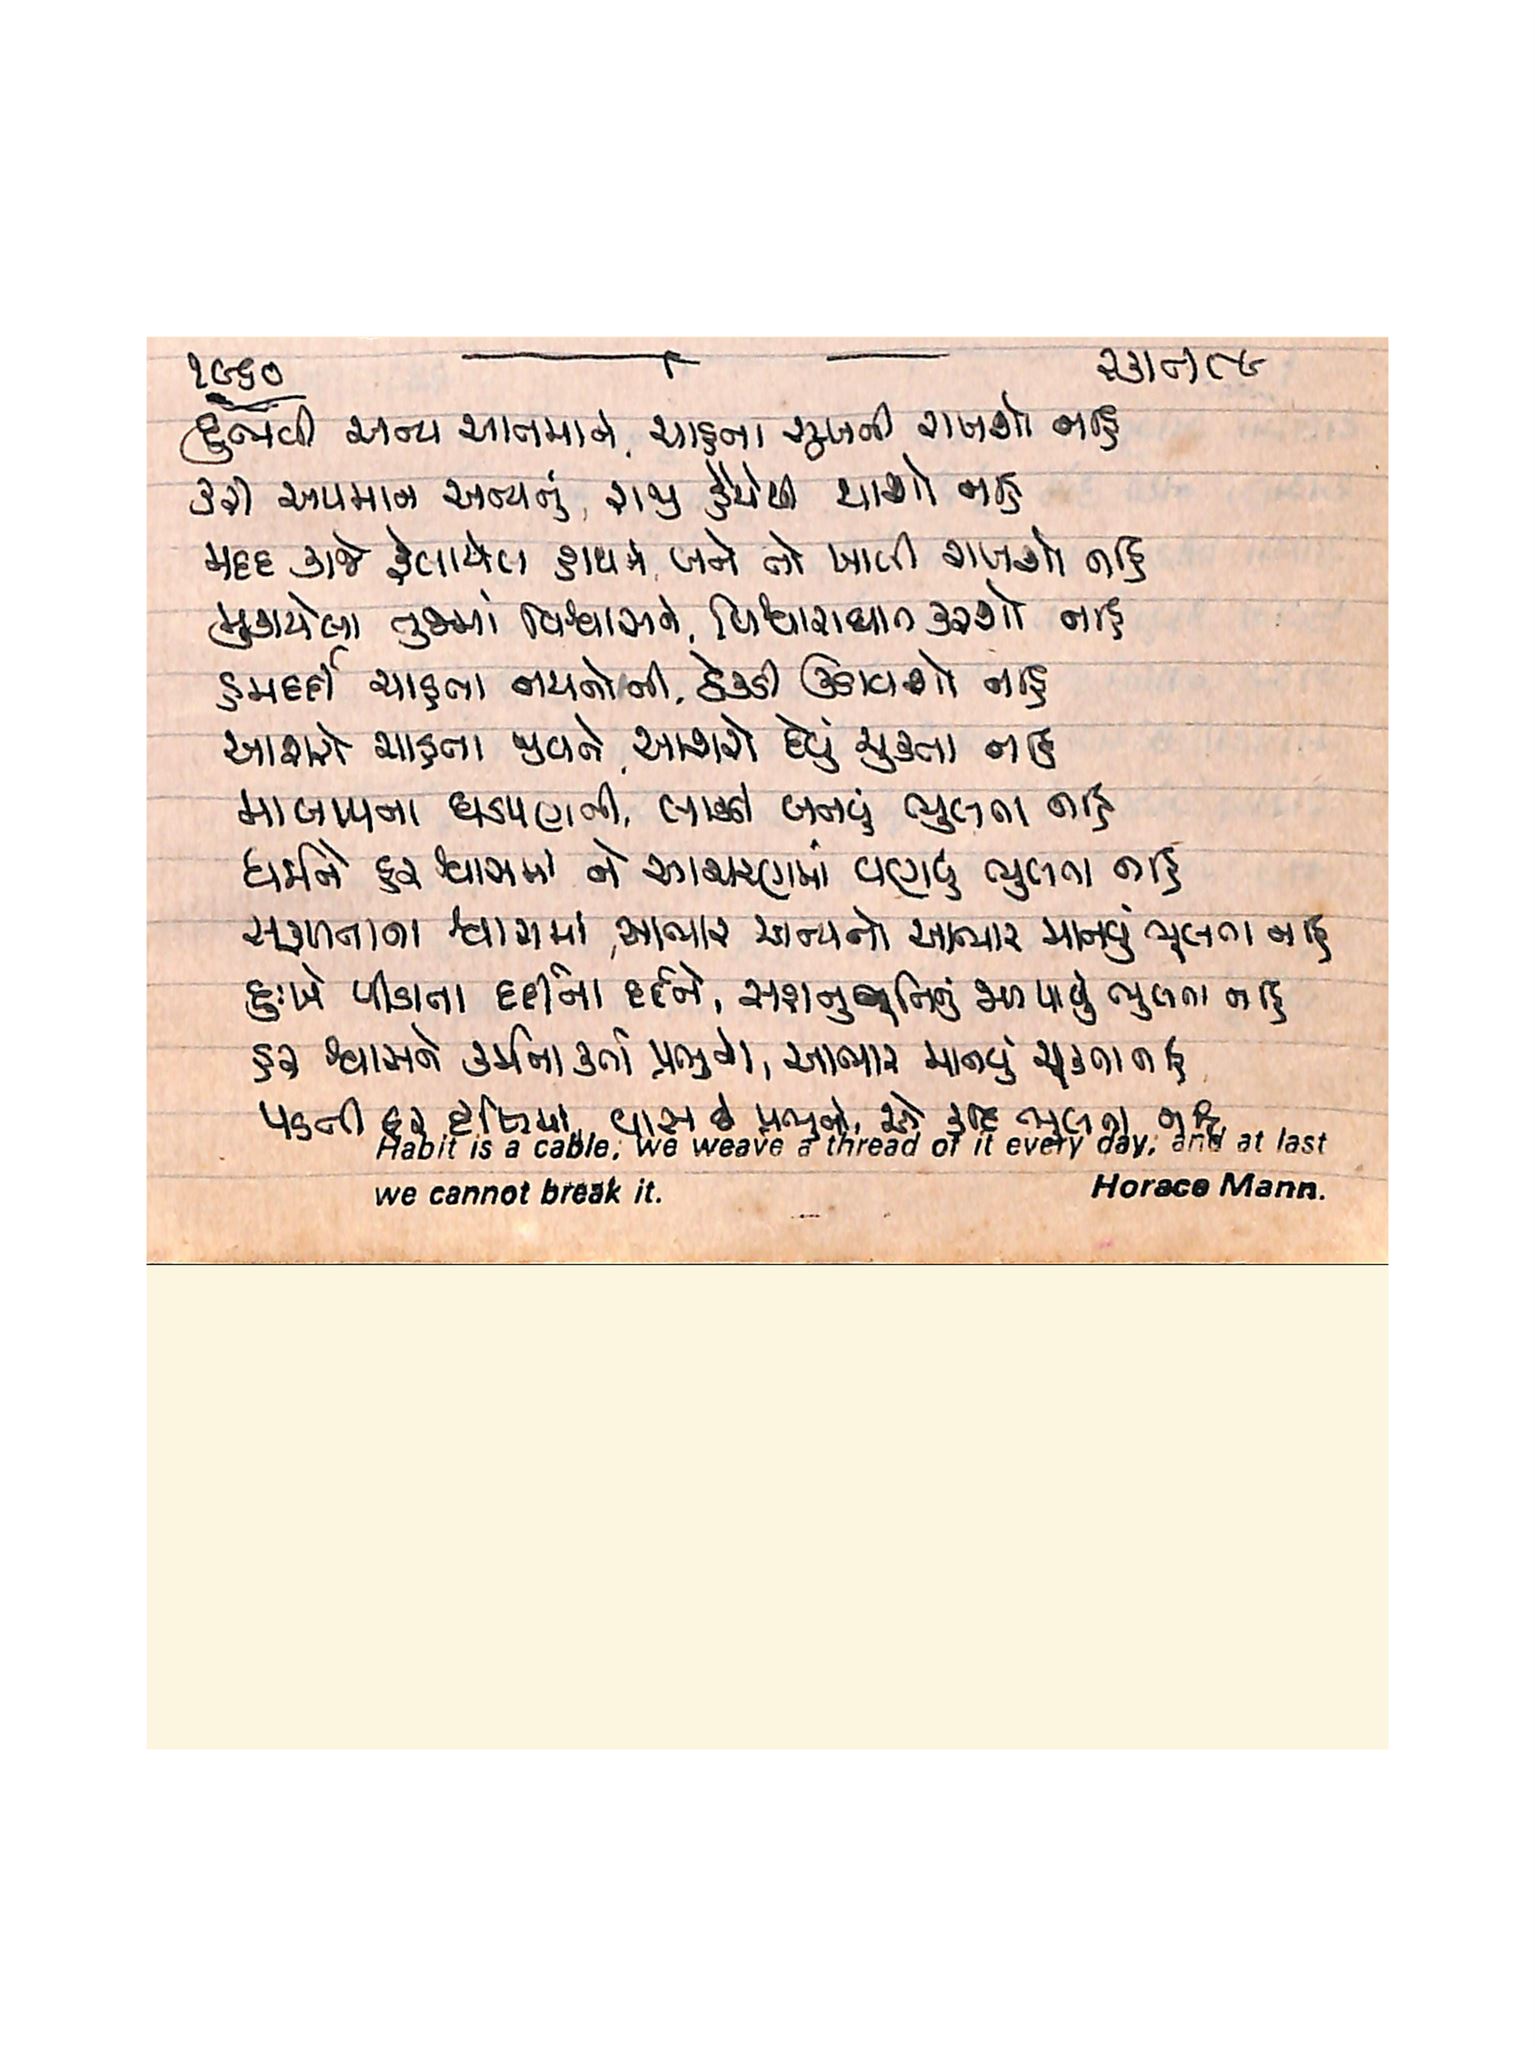 ૧૯૬૦
દુભવી અન્ય આતમાને, ચાહના સુખની રાખશો નહિ
કરી અપમાન અન્યનું, રાજી હૈયેથી થાશો નહિ
મદદ કાજે ફેલાયેલ હાથને, બને તો ખાલી રાખશો નહિ
મુકાયેલા તુજમાં વિશ્વાસને, વિશ્વાસઘાત કરશો નહિ
હમદર્દી ચાહતા નયનોની, ઠેકડી ઉડાવશો નહિ
આશરો ચાહતા જીવને, આશરો દેવું ચુકતા નહિ
માબાપના ઘડપણની, લાકડી બનવું ભુલતા નહિ
ધર્મને હર શ્વાસમાં ને આચરણમાં વણવું ભુલતા નહિ
સફળતાના શ્વાસમાં, અન્યનો આભાર માનવું ભૂલતા નહિ
દુઃખે પીડાતા દર્દીના દર્દને, સહાનુભૂતિનું પાવું ભુલતા નહિ
હર શ્વાસને કર્મના કર્તા પ્રભુને, આભાર માનવું ચૂકતા નહિ
પડતી હર દૃષ્ટિમાં, વાસ છે પ્રભુનો, એ કદિ ભુલતા નહિ
Habit is a cable; we weave a thread of it every day, and at last
we cannot break it. Horace Mann.